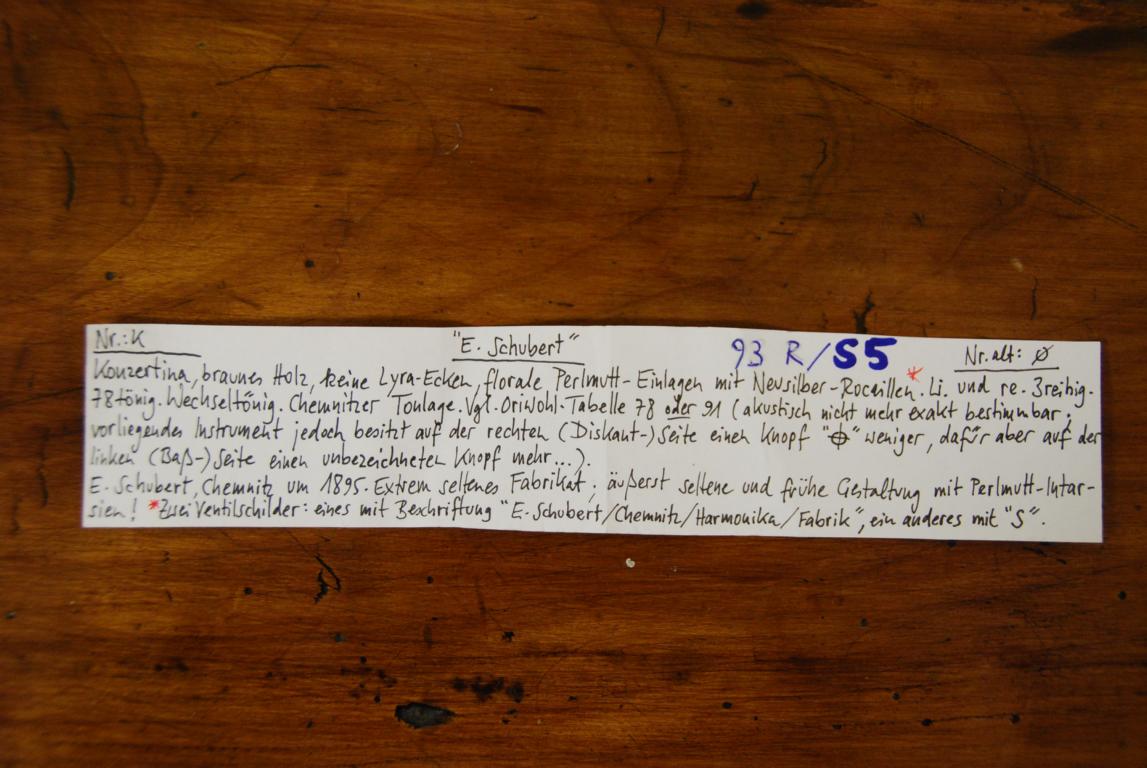 Nr.: K "E. Schubert" 93 R/S5 Nr. alt: ø
Konzertina, braunes Holz, keine Lyra-Ecken, florale Perlmutt-Einlagen mit Neusilber-Rocaillen.* Li. und re. 3reihig.
78tönig. Wechseltönig. Chemnitzer Tonlage. Vgl. Oriwohl-Tabelle 78 oder 91 (akustisch nicht mehr exakt bestimmbar;
vorliegendes Instrument jedoch besitzt auf der rechten (Diskant-)Seite einen Knopf "Φ" weniger, dafür aber auf der
linken (Baß-)Seite einen unbezeichneten Knopf mehr...).
E. Schubert, Chemnitz um 1895. Extrem seltenes Fabrikat; äußerst seltene und frühe Gestaltung mit Perlmutt-Intar-
sien! *Zwei Ventilschilder: eines mit Beschriftung "E. Schubert/Chemnitz/Harmonika/Fabrik", ein anderes mit "S".